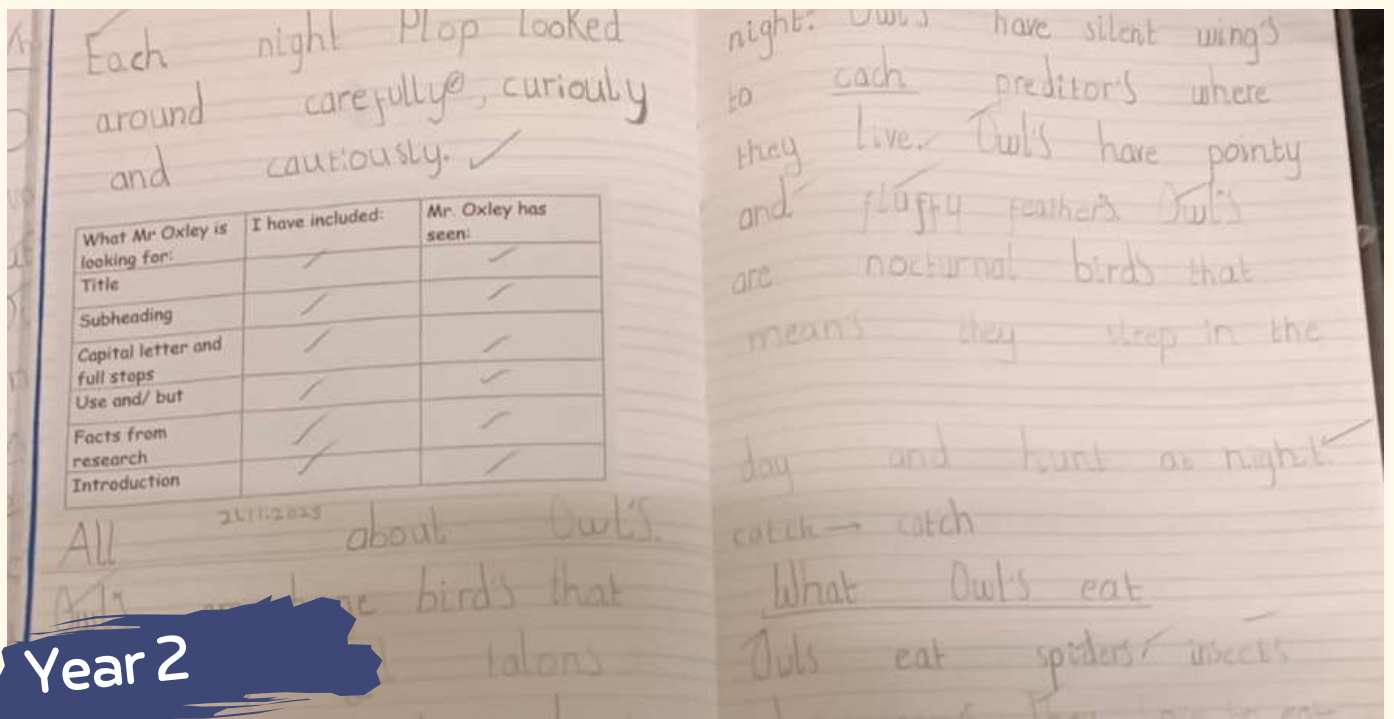 Each night Plop looked
around carefully, curiouly
and cautiously.
What Mr Oxley is looking for:
I have included:
Mr. Oxley has seen:
Title
Subheading
Capital letter and full stops
Use and/ but
Facts from research
Introduction
21.11.2023
All about Owl's.
birds that
talons
night. Owl's have silent wing's
to cach preditor's where
they live. Owl's have pointy
and fluffy feathers. Owl's
are nocturnal birds that
means they sleep in the
day and hunt at night.
catch → catch
What Owl's eat
Owls eat spiders insects
Year 2